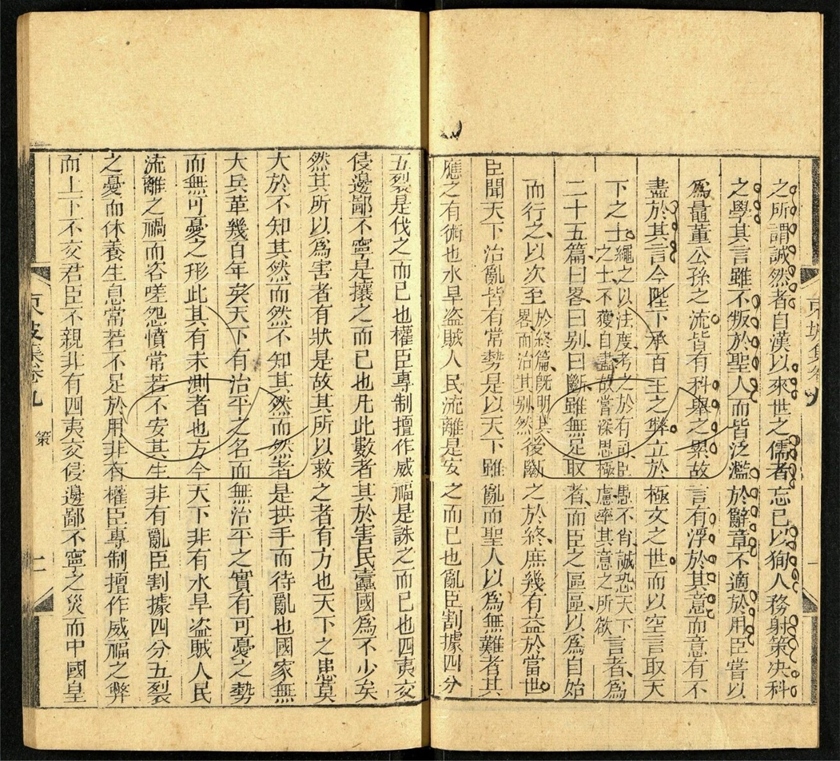 東坡集卷九
一
之所謂誠然者自漢以來世之儒者忘已以狥人務射策决科
之學其言雖不叛於聖人而皆泛濫於辭章不適於用臣嘗以
爲鼂董公孫之流皆有科舉之累故言有浮於其意而意有不
盡於其言今陛下承百王之弊立於極文之世而以空言取天
下之士繩之以法度考之於有司臣愚不肖誠恐天下
之士不獲自盡故嘗深思極慮率其意之所欲言者爲
二十五篇曰畧曰别曰斷雖無足取者而臣之區區以爲自始
而行之以次至於終篇旣明其
畧而治其别然後斷之於終庶幾有益於當世
臣聞天下治亂皆有常勢是以天下雖亂而聖人以爲無難者其
應之有術也水旱盗賊人民流離是安之而已也亂臣割據四分
五裂是伐之而已也權臣專制擅作威福是誅之而已也四夷交
侵邊鄙不寧是攘之而已也凡此數者其於害民蠹國爲不少矣
然其所以爲害者有狀是故其所以救之者有方也天下之患莫
大於不知其然而然不知其然而然者是拱手而待亂也國家無
大兵革幾百年矣天下有治平之名而無治平之實有可憂之勢
而無可憂之形此其有未測者也方今天下非有水旱盗賊人民
流離之禍而咨嗟怨憤常若不安其生非有亂臣割據四分五裂
之憂而休養生息常若不足於用非有權臣專制擅作威福之弊
而上下不交君臣不親非有四夷交侵邊鄙不寧之災而中國皇
東坡集卷九
策
二